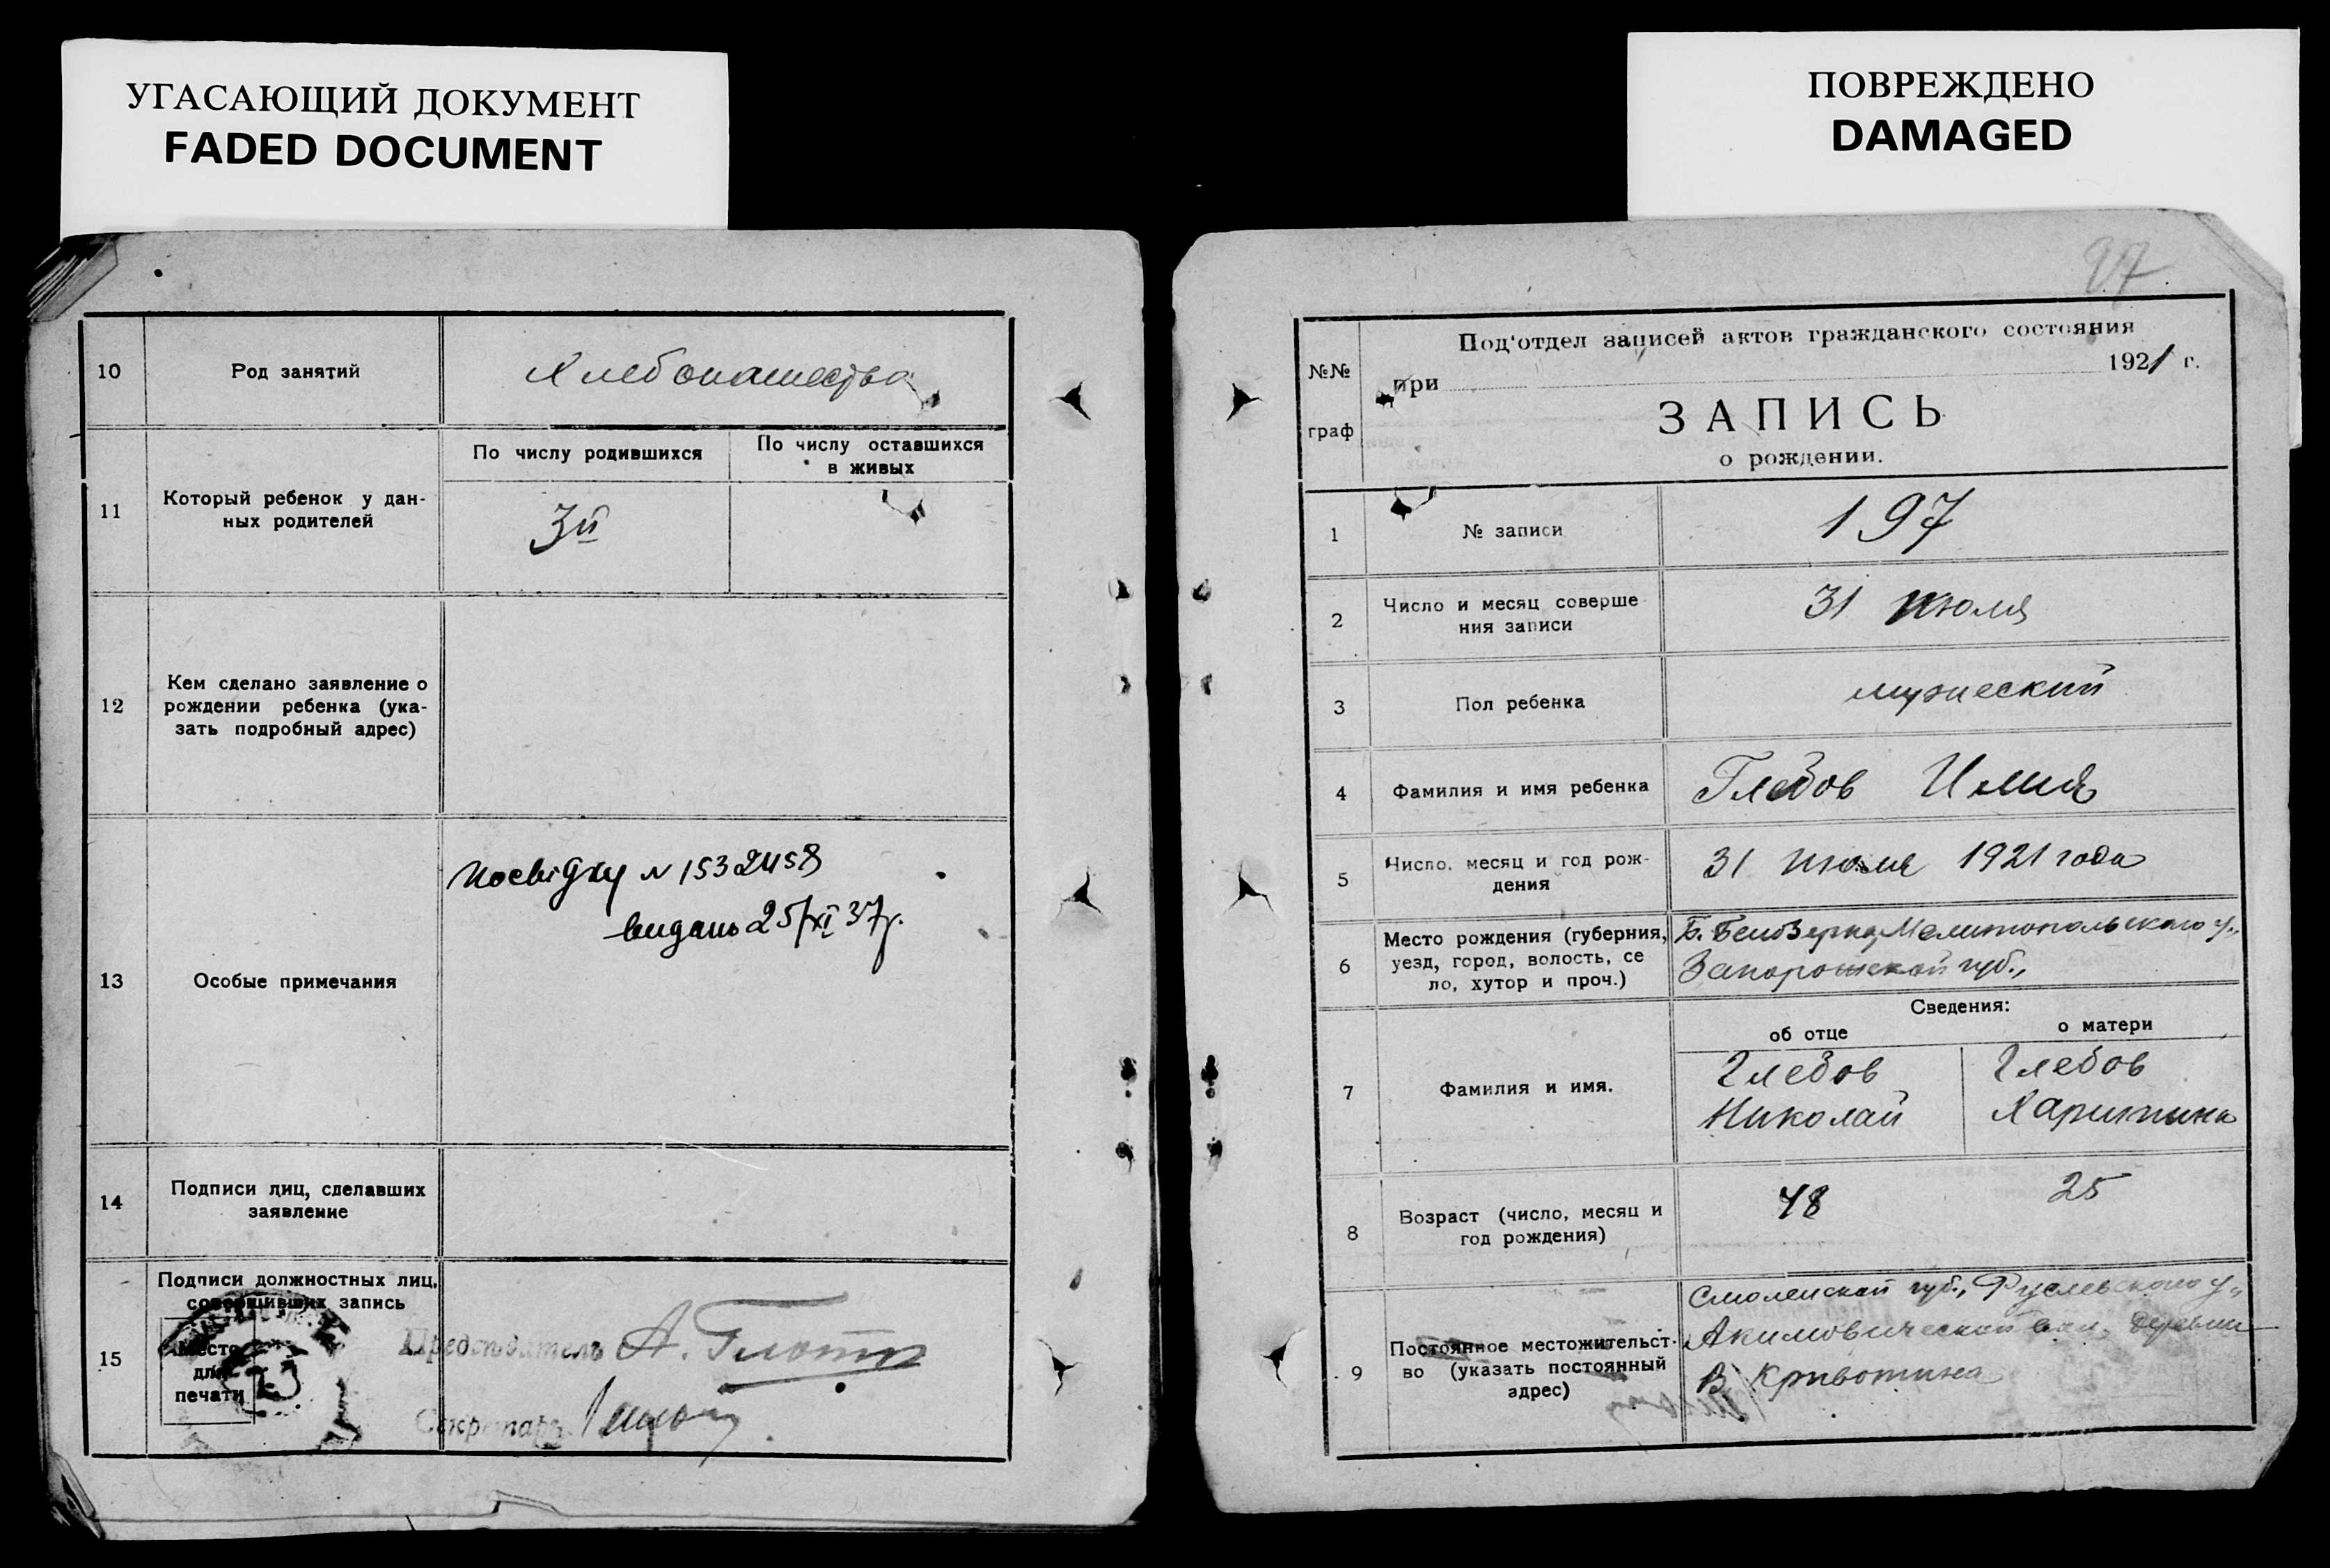 УГАСАЮЩИЙ ДОКУМЕНТ
FADED DOCUMENT
10
Род занятий
Хлебопашество
11
Который ребенок у дан-
ных родителей
По числу родившихся
По числу оставшихся
в живых
3й
12
Кем сделано заявление о
рождении ребенка (ука-
зать подробный адрес)
13
Особые примечания
№ 1532458
видано 25/XI 37р.
14
Подписи лиц, сделавших
заявление
15
Подписи должностных лиц,
совершивших запись
Место
для
печати
Председатель А.
Секретарь
ПОВРЕЖДЕНО
DAMAGED
97
№№
граф
Под'отдел записей актов гражданского состояния
при 1921 г.
ЗАПИСЬ
о рождении.
1
№ записи
197
2
Число и месяц соверше
ния записи
31 июля
3
Пол ребенка
мужеский
4
Фамилия и имя ребенка
Глебов Илия
5
Число, месяц и год рож-
дения
31 июля 1921 года
6
Место рождения (губерния,
уезд, город, волость, се
ло, хутор и проч.)
Б. Белозерка, Мелитопольского у.,
Запорожской губ.,
Сведения:
об отце
о матери
7
Фамилия и имя.
Глебов
Николай
Глебов
Харитина
8
Возраст (число, месяц и
год рождения)
48
25
9
Постоянное местожительст-
во (указать постоянный
адрес)
Смоленской губ., у.,
Акимовической вол. деревни
В Кривотина